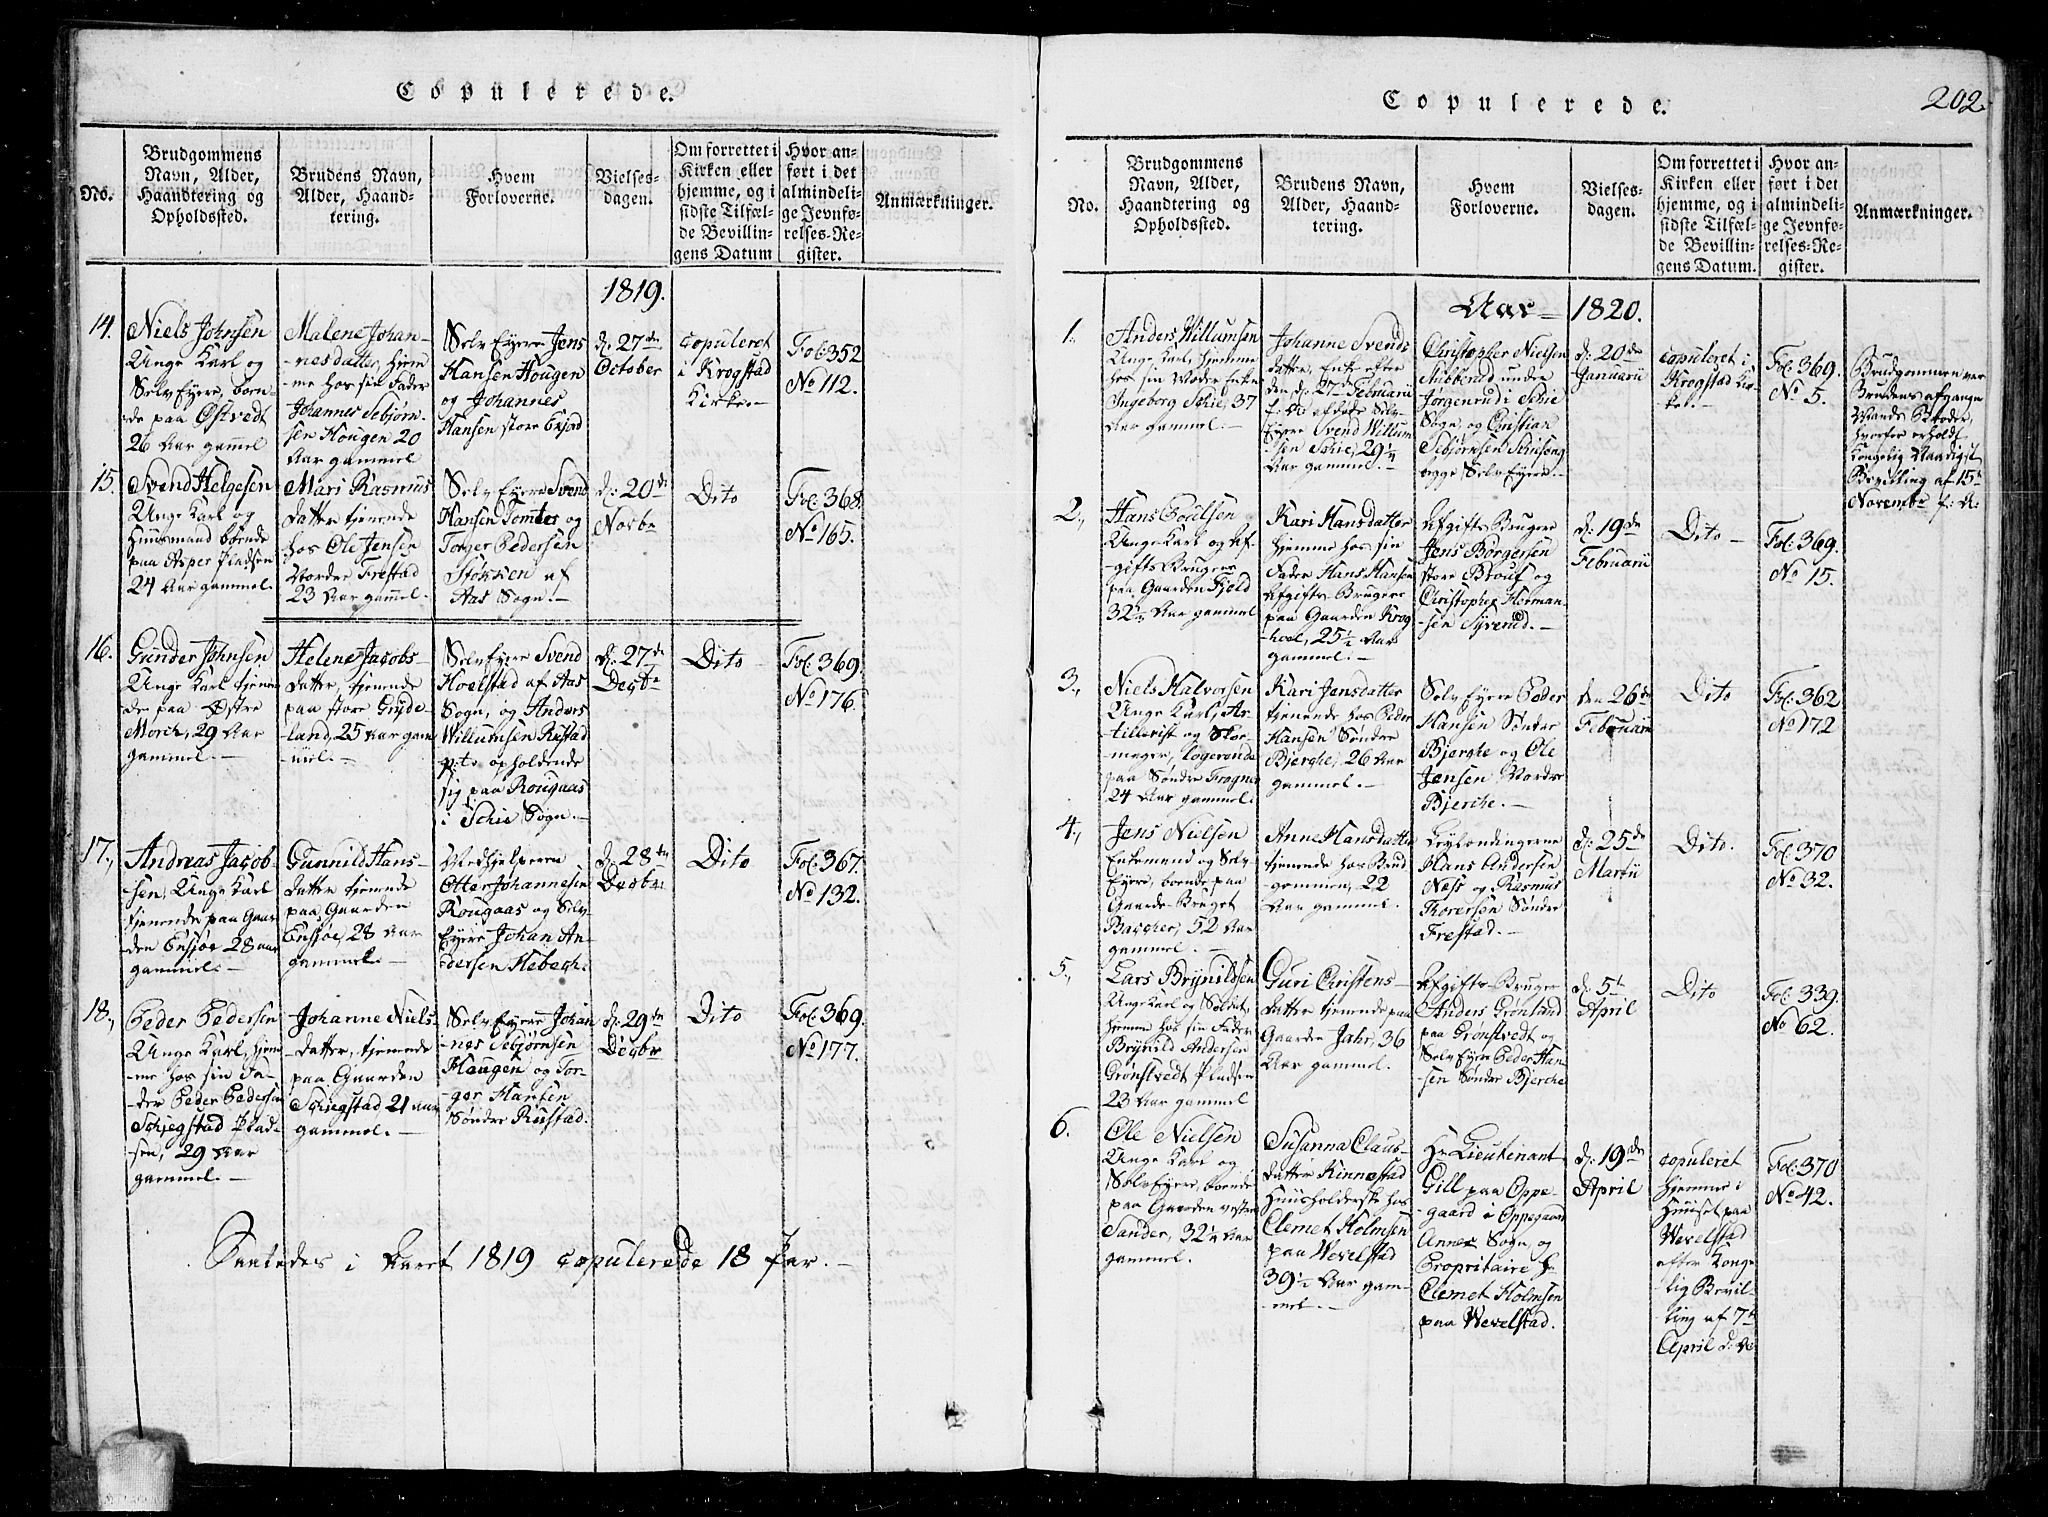 Copulerede.
No.
Brudgommens
Navn, Alder,
Haandtering og
Opholdssted.
Brudens Navn,
Alder, Haand-
tering.
Hvem
Forloverne.
Vielses-
dagen.
Om forrettet i
Kirken eller
hjemme, og i
sidste Tilfæl-
de Bevillin-
gens Datum
Hvor an-
ført i det
almindeli-
ge Jevnfø-
relses-Re-
gister.
Anmærkninger.
1819.
14.
Niels Johnsen
Unge Karl og
Selv Eyere, boen-
de paa Østvedt
26 Aar gammel
Malene Johan-
nesdatter, hjem-
me hos sin Fader
Johannes Sebjørn-
sen Hougen 20
Aar gammel
Selv Eyere Jens
Hansen Hougen
og Johannes
Hansen store
d: 27de
October
copuleret
i Krogstad
Kirke.-
Fol: 352
No 112.
15.
Svend Helgesen
Unge Karl og
Huusmand boende
paa Asper Pladsen
24 Aar gammel.
Mari Rasmus
datter tjenende
hos Ole Jensen
Nordre Frestad
23 Aar gammel.-
Selv Eyere Svend
Hansen Tomter og
Torger Pedersen
Støkken af
Aas Sogn.-
d: 20de
Novbr
Dito
Fol: 368.
No 165.
16.
Gunder Johnsen
Unge Karl tjenen-
de paa Østre
Morch, 29 Aar
gammel.-
Helene Jacobs-
datter, tjenende
paa store Gryde-
land, 25 Aar gam-
mel.-
Selv Eyere Svend
Hoelstad af Aas
Sogn, og Anders
Willumsen Rustad
p:t: opholdende
sig paa Rougaas
i Schie Sogn.-
d: 27de
Decbr
Dito
Fol: 369.
No 176.
17.,
Andreas Jacob-
sen, Unge Karl
tjenende paa Gaar-
den Ensjøe 28 aar
gammel.-
Gunnild Hans-
datter tjenende
paa Gaarden
Ensjøe, 28 Aar
gammel.-
Medhjelperen
Otter Johannesen
Rougaas og Selv
Eyere Johan An-
dersen Hebech.
d: 28de
Decbr
Dito
Fol: 367.
No 132.
18.,
Peder Pedersen
Unge Karl, hjem-
me hos sin Fa-
der Peder Pedersen
Schjegstad Plad-
sen, 29 Aar
gammel.-
Johanne Niels-
datter, tjenende
paa Gaarden
Schjegstad 21 aar
gammel.-
Selv Eyere Johan-
nes Sebjørnsen
Haugen og Tor-
ger Hansen
Søndre Rustad.
d: 29de
Decbr
Dito
Fol: 369.
No 177.
Saaledes i Aaret 1819 copulerede 18 Par.-
Copulerede.
202.
No.
Brudgommens
Navn, Alder,
Haandtering og
Opholdssted.
Brudens Navn,
Alder, Haand-
tering.
Hvem
Forloverne.
Vielses-
dagen.
Om forrettet i
Kirken eller
hjemme, og i
sidste Tilfæl-
de Bevillin-
gens Datum.
Hvor an-
ført i det
almindeli-
ge Jevnfø-
relses-Re-
gister.
Anmærkninger.
Aar- 1820.
1.,
Anders Willumsen
Unge Karl, hjemme
hos sin Moder Enke
Ingeborg Schie, 37
Aar gammel.-
Johanne Svends
datter, Enke efter
den d: 27de Februarii
f: A: afdøde Selv-
Eyere Svend Willum-
sen Schie, 29 1/4
Aar gammel.-
Christopher Nielsen
Stubberud under
Jørgenrud i Schie
Sogn, og Christian
Sebjørnsen
begge Selv Eyere.-
d: 20de
Januarii
copuleret i
Krogstad Kir-
ke.-
Fol: 369.
No 5.
Brudgommen var
Brudens afgangne
Mands Broder,
hvorfor erholdt
Kongelig Naadigst
Bevilling af 15de
November f: A:
2.,
Hans Poulsen
Unge Karl og Af-
gifts Brugere
paa Gaarden Fjeld
32 1/2 Aar gammel
Kari Hansdatter
hjemme hos sin
Fader Hans Hansen
Afgifts Brugere
paa Gaarden Krog-
hoel, 25 1/2 Aar
gammel.-
Afgifts Brugere
Jens Børgersen
store Brouf og
Christopher Herman-
sen Syverud.-
d: 19de
Februarii
Dito-
Fol: 369.
No 15.
3.,
Niels Halvorsen
Unge Karl, Ar-
tillerist og Skoe-
mager, logerende
paa Søndre Frogner
24 Aar gammel.
Kari Jensdatter
tjenende hos Peder
Hansen Søndre
Bjerche, 26 Aar
gammel.-
Selv Eyere Peder
Hansen Søndre
Bjerche og Ole
Jensen Nordre
Bjerche.-
den 26de
Februarii
Dito
Fol: 362
No 172
4.,
Jens Nielsen
Enkemand og Selv-
Eyere, boende paa
Gaarde-Bruget
Bascher, 52 Aar
gammel.-
Anne Hansdatter
tjenende hos Brud-
gommen, 22
Aar gammel.-
Leylændingerne
Hans Andersen
Næss og Rasmus
Thorersen Søndre
Frestad.-
d: 25de
Martii
Dito.
Fol: 370
No 32.
5.,
Lars Brynildsen
Unge Karl og Soldat,
hjemme hos sin Fader
Brynild Andersen
Grønslvedt Pladsen
23 Aar gammel
Guri Christens-
datter tjenende paa
Gaarden Jahr, 36
Aar gammel.
Afgifts-Bruger
Anders Grønland
paa Grønslvedt og
Selv Eyere Peder Han-
sen Søndre Bjerche
d: 5te
April
Dito
Fol: 339.
No 62.
6.
Ole Nielsen
Unge Karl og
Selv Eyere, boende
paa Gaarden vestre
Sander, 32 1/4 Aar
gammel.
Susanna Claus-
datter Kinnestad
Huusholderske hos
Clemet Holmsen
paa Wevelstad
39 1/2 Aar gam-
mel.-
Hr Lieutenant
Gill paa Oppe-
gaard i Oppegaard
Annex Sogn, og
Propritaire Hr
Clemet Holmsen
paa Wevelstad.
d: 19de
April
copuleret
hjemme i
Huuset paa
Wevelstad
efter Konge-
lig Bevil-
ling af 7de
April d: A:
Fol: 370
No 42.